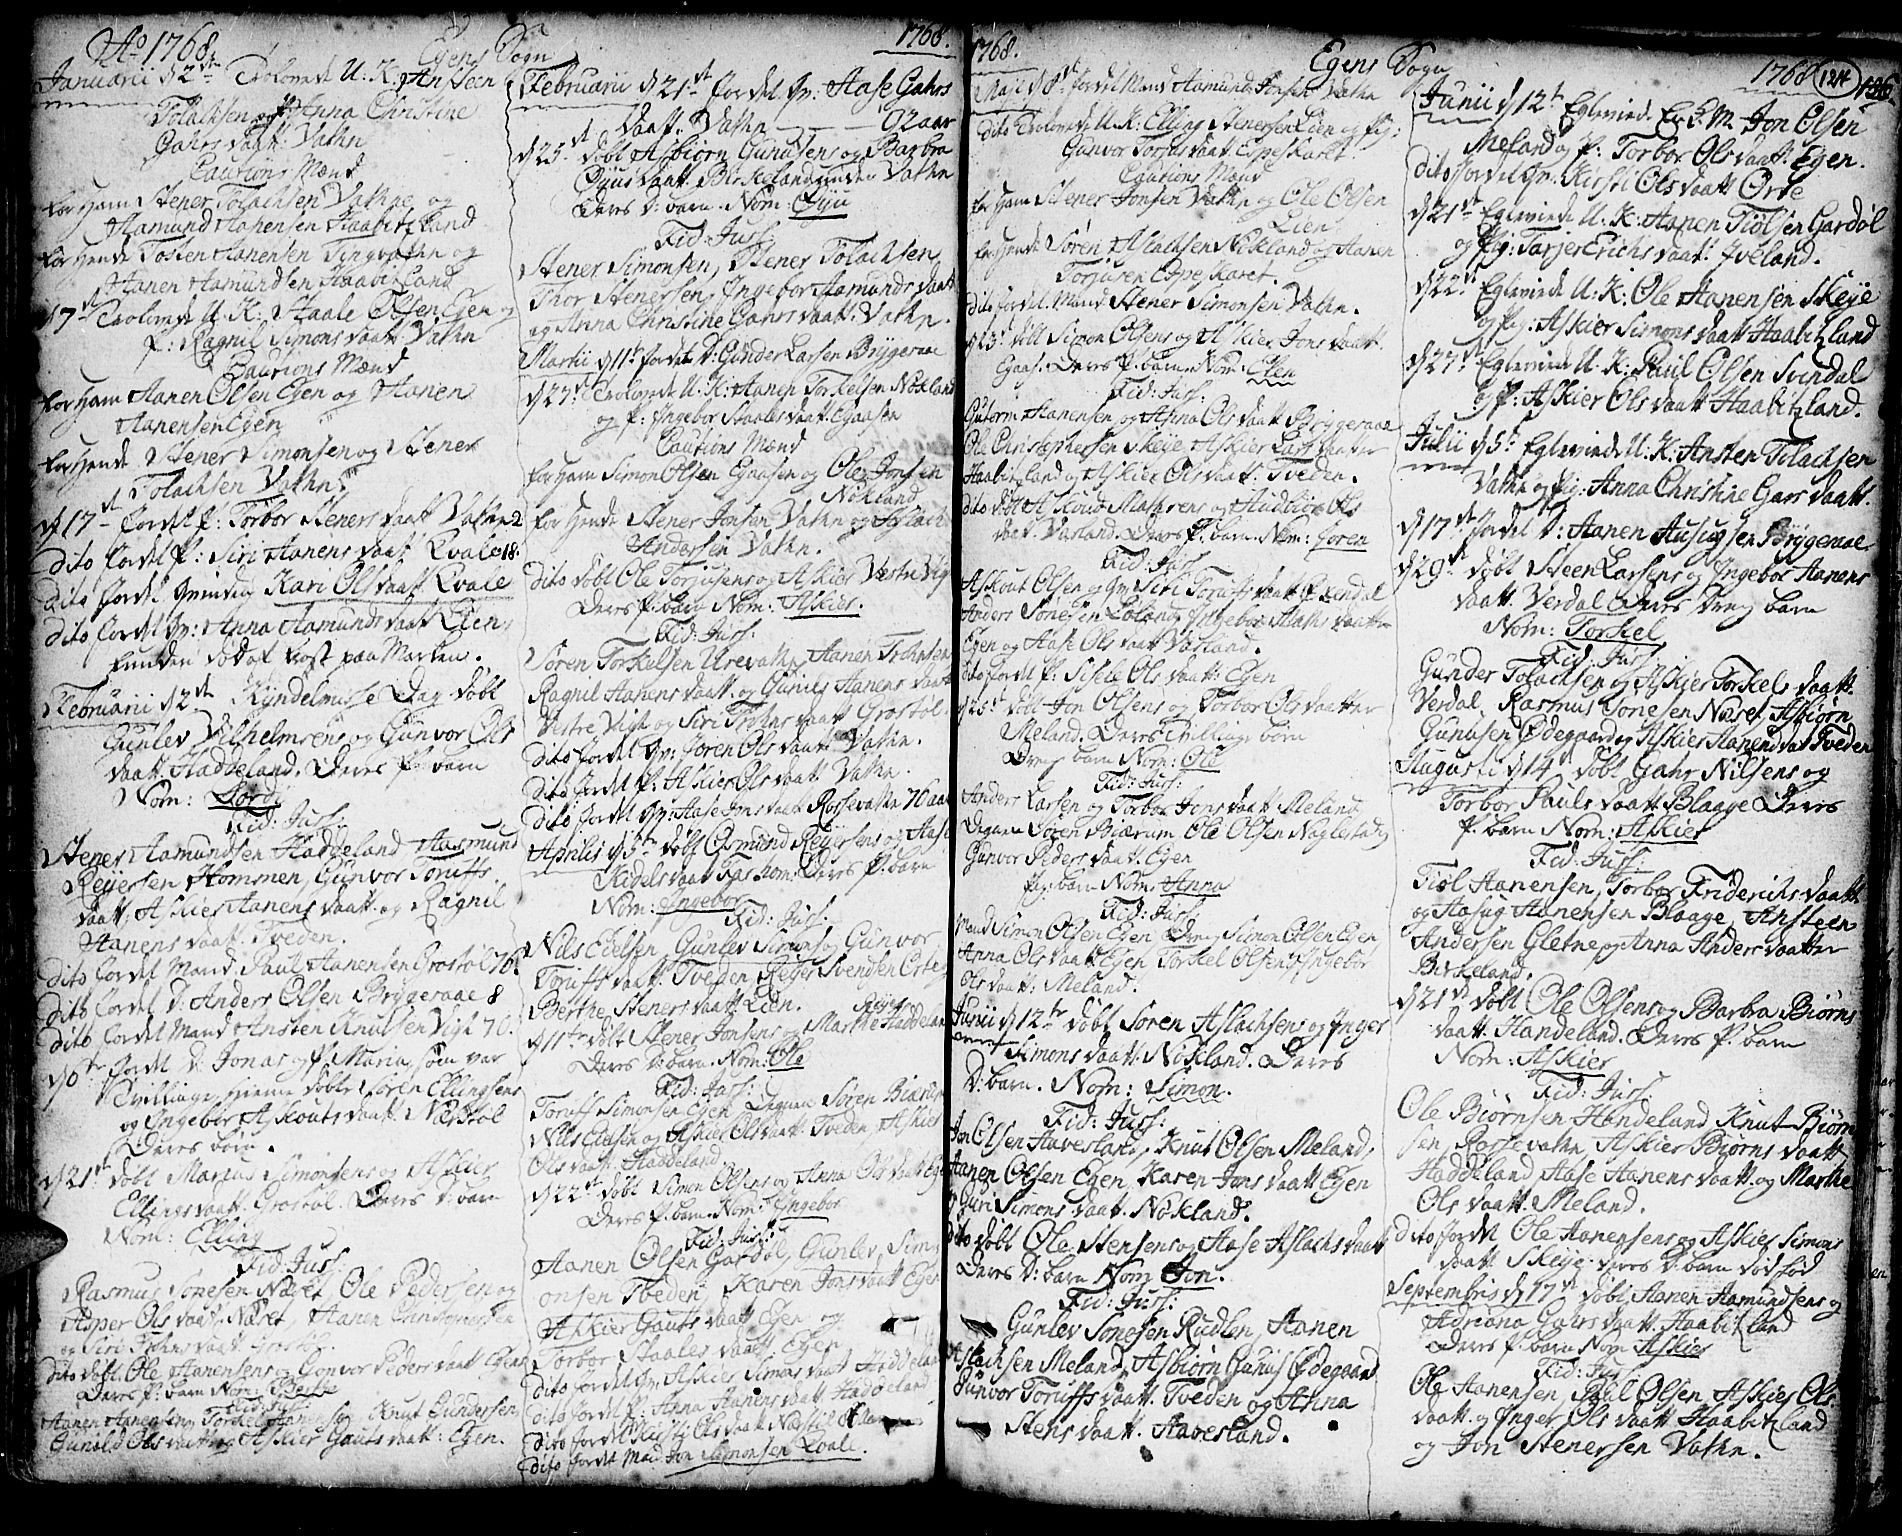 Ao 1768. Egens Sogn 1768.
Januarii d 2den Trolovede U. K: Ansteen
Tolachsen og P. Anna Christine
Gahrs daatt: Vathn
Cautions Mænd
for ham Stener Tolachsen Vathne og
Aamund Aanensen Haabitzland
for hende Tosten Aanensen Tingvathn og
Aanen Aamundsen Haabitzland
d 7de Trolovede U. K: Staale Olsen Egen og
P: Ragnil Simons daatt Vathn
Cautions Mænd
for ham Aanen Olsen Egen og Aanen
Aanensen Egen
for hende Stener Simonsen og Stener
Tolachsen Vathn
d 17de Jordet P: Torbor Steners daatt Vathn 2
Dito Jordet P: Siri Aanens daatt Qvale 18.
Dito Jordet Qvinden Kari Ols daatt Qvale
Dito Jordet Qv: Anna Aamunds daatt Lien,
funden død af frost paa Marken.
Februarii d 2den Kyndelmisse Dag døbt
Gunlev Vilhelmsens og Gunvor Ols
daatt. Haddeland. Deres P. barn
Nom: Tord
Fid: Juss:
Stener Aamundsen Haddeland Aasmund
Reyersen Hommen, Gunvor Toruffs
daatt, Askier Aanens daatt. og Ragnil
Aanens daatt. Tveden.
dito Jordet Mand Paul Aanensen Grostøl 70
dito Jordet D: Anders Olsen Bryggeraae 8
dito Jordet Mand Ansten Knudsen Vigh 70.
Jordet D. Jonas og P. Maria, som var
Tvillinge hiemme døbte Søren Ellingsens
og Ingebor Askouts daatt. Nærstøl
Deres børn.
d 21de døbt Marcus Simonsens og Askier
Ellings daatt. Grostøl. Deres D: barn
Nom: Elling
Fid: Juss:
Rasmus Tonesen Næset, Ole Pedersen og
Asper Ols daatt. Næset, Aanen
og Siri daatt. Grostøl.
dito døbt Ole Aanensens og Gonvor Peders daatt Egen
Deres P. barn Nom:
Fid: Juss:
Aanen Aanensen, Torkel Aanensen, Knut Gundersen,
Gunild Ols daatter og Askier Gauts daatt: Egen.
Februarii d 21de Jordet Qv: Aase Gahrs
daatt. Vathn 92 aar
d 25de døbt Asbiørn Gunusens og Barbra
Øyus daatt. Birkeland under Vathn
Deres D: barn. Nom: Øyu
Fid: Juss:
Stener Simonsen, Stener Tolachsen,
Thor Stenersen, Ingebor Aamunds daatt
og Anna Christine Gahrs daatt. Vathn.
Martii d 11te Jordet D: Gunder Larsen Bryggeraae
d 27de Trolovede U. K: Aanen Torkelsen Nøkland
og P: Ingebor Staales daatt. Egaasen
Cautions Mænd
for ham Simon Olsen Egaasen og Ole Jonsen
Nøkland
for hende Stener Jonsen Vathn og Aslach
Andersen Vathn.
Dito døbt Ole Torjusens og Askier Vestre Vigh
Deres P. barn Nom: Askier.
Fid: Juss:
Søren Torkelsen Urevathn, Aanen
Ragnil Aanens daatt. og Gunild Aanens daatt
Vestre Vigh og Siri daatt Grostøl.
dito Jordet Qv: Søren Ols daatt Vathn.
dito Jordet P: Askier Ols daatt Vathn.
dito Jordet Qv: Aase Jons daatt Rossevathn 70 aar
Aprilis d 5te døbt Osmund Reyersens og Aase
Kidels daatt Deres P. barn
Nom: Ingebor
Fid: Juss:
Nils Eielsen, Gunlev Simons, Gunvor
Toruffs daatt. Tveden, Reyer Svendsen Orte,
Berthe Steners daatt Lien.
d 11te døbt Stener Jonsens og Marthe Reyers Haddeland
Deres D: barn. Nom: Ole
Fid: Juss:
Toruff Simonsen Egen, Degnen Søren Biærum
Nils Eielsen og Askier Ols daatt. Tveden, Askier
Ols daatt. Haddeland
d 22de døbt Simon Olsens og Anna Ols daatt Egen
Deres P. barn. Nom: Ingebor
Fid: Juss:
Aanen Olsen Gardøl, Gunlev Sim-
onsen Tveden, Karen Jons daatt Egen
Askier Gauts daatt Egen og
Torbor Staales daatt. Egen
dito Jordet Qv. Askier Simons daatt Haddeland
dito Jordet P. Anna Aanens daatt Haddeland
dito Jordet Kirsti Ols daatt Nærstøl
dito Jordet Mand Jon Simonsen Qvale.
1768. Egens Sogn 1768 124 136
Maji d 8de Jordet Mand Aamund Jonsen Vathn
dito Trolovede U. K: Elling Stenersen Lien og Pig:
Gunvor Torjus daatt. Espeskaret.
Cautions Mænd
for ham Stener Jonsen Vathn og Ole Olsen
Lien
for hende Søren Aslachsen Nøkland og Aanen
Torjusen Espeskaret.
dito Jordet Mand Stener Simonsen Vathn.
d 13de døbt Simon Olsens og Askier Jons daatt.
Egaas. Deres P. barn. Nom: Elen
Fid: Juss:
Guttorm Aanensen og Anna Ols daatt Bryggeraae
Ole Christophersen Skeye Askier Lars daatter
Haabitzland og Askier Ols daatt. Tveden.
dito døbt Askoud Mathæus og Audbior Ols
daatt. Væsland. Deres P. barn. Nom: Søren
Fid: Juss:
Askout Olsen og Qv. Siri Toruffs daatt
Anders Tonesen og Ingebor Staales daatter
Egen og Aase Ols daatt Væsland.
dito Jordet P. Sisele Ols daatt. Egen
døbt Jon Olsens og Torbor Ols daatter
Meland. Deres Tvillinge børn
Dreng barn Nom: Ole
Fid: Juss:
Anders Larsen og Torbor Jons daatt. Meland,
Degnen Søren Biærum, Ole Olsen Naglestad,
Gunvor Peders daatt. Egen
Pig: barn Nom: Anna
Fid: Juss:
Mand Simon Olsen Egen, Dreng Simon Olsen Egen,
Anna Ols daatt Egen, Torkel Olsen og Ingebor
Ols daatt. Meland.
Junii d 12te døbt Søren Aslachsens og Inger
Simons daatt. Nøkland. Deres
D: barn. Nom: Simon.
Fid: Juss:
Jon Olsen Aavesland, Knut Olsen Meland,
Aanen Olsen Egen, Karen Jons daatt Egen
Guri Simons daatt. Nøkland.
dito døbt Ole Stensens og Aase Aslachs daatt
Deres D: barn Nom Jon.
Fid: Juss:
Gunlev Tonesen Rudlen, Aanen
Aslachsen Meland, Asbiørn Gunus Ødegaard
Gunvor Toruffs daatt. Tveden og Anna
Stens daatt. Aavesland.
Junii d 12te Egteviede E. M. Jon Olsen
Meland og P: Torbor Ols daatt. Egen.
Dito Jordet Qv: Kirsti Ols daatt Orte
d 21de Egteviede U. K: Aanen Tiølsen Gardøl
og Pig: Tarjer Erichs daatt. Iveland.
d 22de Egteviede U: K: Ole Aanensen Skeye
og Pig: Askier Simons daatt Haabitzland
d 27de Egteviede U. K: Paul Olsen Svendal
og P: Askier Ols daatt Haabitzland.
Julii d 5te Egteviede U. K: Ansten Tolachsen
Vathn og Pig: Anna Christine Gars daatt.
d 17de Jordet D: Aanen Ausugsen Bryggeraae
d 29de døbt Steen Larsens og Ingebor Aanens
daatt. Verdal Deres Dreng barn
Nom: Torkel
Fid: Juss:
Gunder Tolachsen og Askier Torkels daatt.
Verdal. Rasmus Tonesen Næset, Asbiørn
Gunusen Ødegaard og Askier Aanens daatt Tveden
Augusti d 14de døbt Gahr Nilsens og
Torbor Pauls daatt. Blaage Deres
P. barn Nom: Askier
Fid: Juss:
Tiøl Aanensen, Torbor Friderichs daatt.
og Aasug Aanensen Blaage, Ansteen
Andersen Gletne og Anna Anders daatter
Birkeland.
d 21de døbt Ole Olsens og Barbra Biørns
daatt. Handeland. Deres P. barn
Nom: Askier
Fid: Juss:
Ole Biørnsen Handeland, Knut Biørn-
sen Rossevathn, Askier Biørns daatt
Haddeland, Aase Aanens daatt. og Marthe
Ols daatt. Meland.
dito Jordet Ole Aanensens og Askier Simons
daatt Skeye deres D: barn dødfød
Septembris d 17de døbt Aanen Aamundsens og
Adriana Gahrs daatt. Haabitzland
Deres P. barn Nom Askier
Fid: Juss:
Ole Aanensen, Poul Olsen, Askier Ols
daatt. og Inger Ols daatt Haabitzland
og Jon Stenersen Vathn.